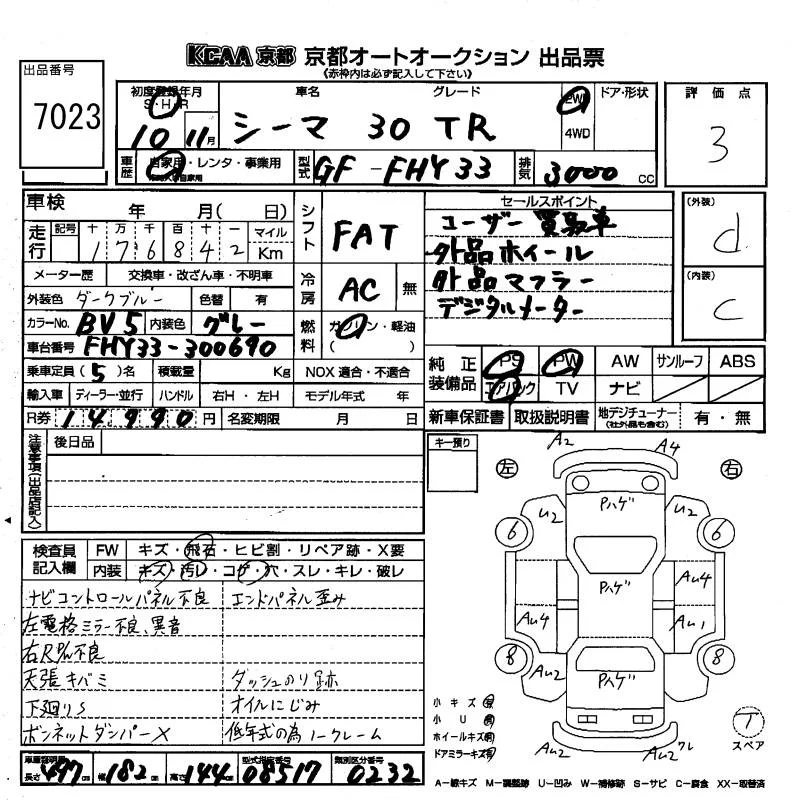 KCAA 京都 京都オートオークション 出品票
《赤枠内は必ず記入して下さい》
出品番号
7023
初度登録年月 車名 グレード ドア・形状
S・H・R
10 年 11月 シーマ 30 TR 2WD 4WD
評価点
3
車歴 自家用・レンタ・事業用
型式 GF-FHY33 排気 3000 cc
車検 年 月( 日)
走行 記号 十 万 千 百 十 一 マイル
1 7 6 8 4 2 Km
メーター歴 交換車・改ざん車・不明車
外装色 ダークブルー 色替 有
カラーNo. BV5 内装色 グレー
車台番号 FHY33-300690
乗車定員(5)名 積載量 Kg NOX 適合・不適合
輸入車 ディーラー・並行 ハンドル 右H・左H モデル年式 年
R券 14,990円 名変期限 月 日
シフト FAT
冷房 AC 無
燃料 ガソリン・軽油
( )
セールスポイント
ユーザー買取車
外品ホイール
外品マフラー
デジタルメーター
(外装)
d
(内装)
C
純正装備品 PS PW AW サンルーフ ABS
エアバック TV ナビ
新車保証書 取扱説明書 地デジチューナー(社外品も含む) 有・無
注意事項(出品店記入) 後日品
キー預り
左 右
A2 A4
Pハゲ
U2 U2
6 6
Pハゲ
AU4
AU4 AU1
8 8
AU2 Pハゲ AU2
AU2 AU2
検査員記入欄 FW キズ・飛石・ヒビ割・リペア跡・X要
内装 キズ・汚レ・コゲ・穴・スレ・キレ・破レ
ナビコントロールパネル不良 エンドパネル歪み
左電格ミラー不良、異音
不良
天張キバミ ダッシュのり跡
下廻りS オイルにじみ
ボンネットダンパーX 低年式の為ノークレーム
小キズ有
小U有
ホイールキズ有
ドアミラーキズ有
T
スペア
長さ 497cm 幅 182cm 高さ 144cm 型式指定番号 08517 類別区分番号 0232
A―線キズ M―調整跡 U―凹み W―補修跡 S―サビ C―腐食 XX―取替済